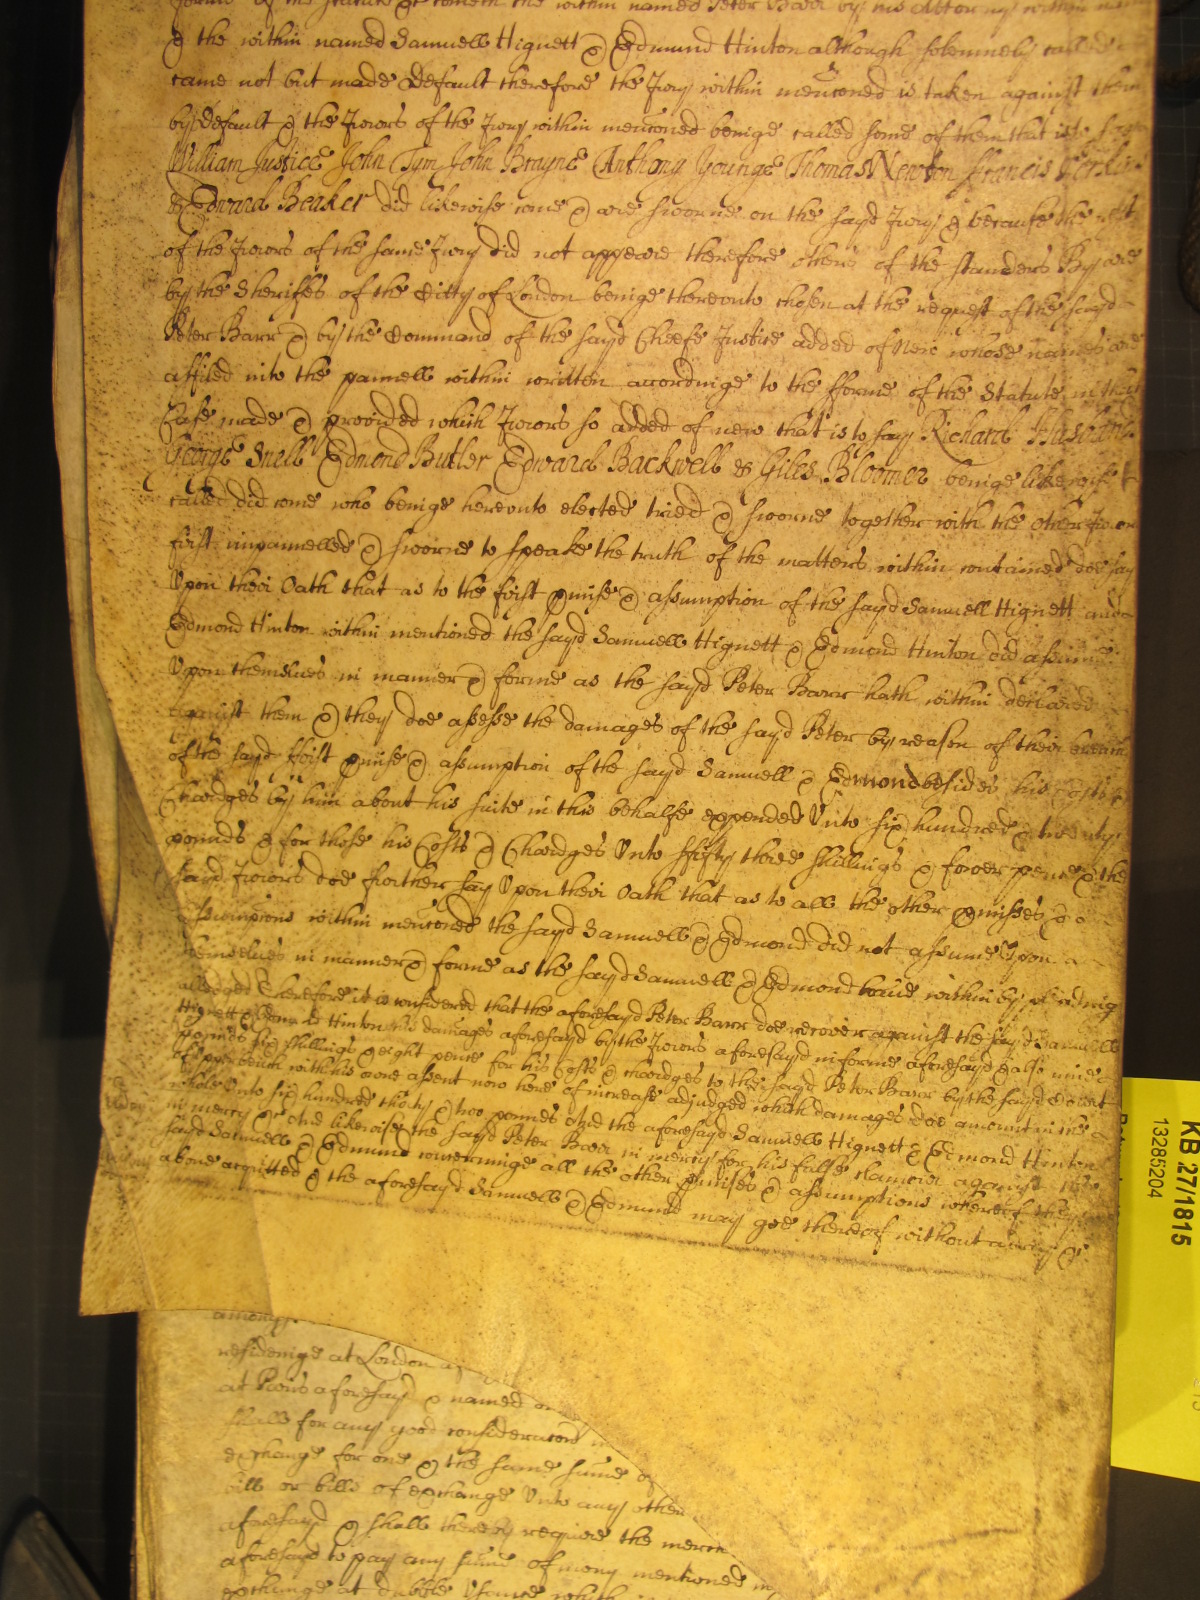 forme of the Statute &c cometh the within named Peter Barr by his Attorney within
& the within named Samuell Hignett & Edmund Hinton although solemnely called
came not but made Default therefore the Jury within menconed is taken against them
by Default & the Jurors of the Jury within menconed beinge called some of them that is to say
William Justice John Tym John Brayne Anthony Younge Thomas Newton Francis
& Edward Beaker did likewise come & are sworne on the sayd Jury & because the rest
of the Jurors of the same Jury did not appeare therefore others of the standers By are
by the Sheriffes of the Citty of London beinge thereunto chosen at the request of the sayd
Peter Barr & by the Command of the sayd Cheefe Justice added of New whose names are
affiled into the pannell within written accordinge to the fforme of the Statute in that
Case made & provided which Jurors so added of new that is to say Richard
George Snell Edmond Butler Edward Backwell & Giles Bloomer beinge likewise
called did come who beinge hereunto elected tried & sworne together with the other Jurors
first impannelled & sworne to speake the truth of the matters within contained doe say
Upon their Oath that as to the first pmise & assumption of the sayd Samuell Hignett and
Edmond Hinton within mentioned the sayd Samuell Hignett & Edmond Hinton did assume
Upon themselves in manner & forme as the sayd Peter Barr hath within declared
against them & they doe assesse the damages of the sayd Peter by reason of their breach
of the sayd ffirst pmise & assumption of the sayd Samuell & Edmond besides his costs &
Chardges by him about his suite in this behalfe expended Unto six hundred & twenty
pounds & for those his Costs & Chardges Unto ffifty three shillings & fower pence & the
sayd Jurors doe further say Upon their Oath that as to all the other pmisses &
Assumptions within menconed the sayd Samuell & Edmond did not assume Upon
themselves in manner & forme as the sayd Samuell & Edmond have within by pleadinge
alledged Therefore it is considered that the aforesayd Peter Barr doe recover against the sayd Samuell
Hignett & Edmond Hinton his damages aforesayd by the Jurors aforesayd in forme aforesayd & alsoe nine
pounds six shillings & eight pence for his Costs & chardges to the sayd Peter Barr by the sayd Court
of Upper bench with his owne assent now here of increase adjudged which damages doe amount in the
whole Unto six hundred thirty & two pounds And the aforesayd Samuell Hignett & Edmond Hinton
in mercy &c And likewise the sayd Peter Barr in mercy for his false clamour against the
sayd Samuell & Edmund concerninge all the other pmises & assumptions whereof they
above acquitted & the aforesayd Samuell & Edmund may goe thereof without day &c
amongst
residenige at London
at Paris aforesayd & named
shall for any good consideracon
exchange for one & the same summe of
bill or bills of exchange Unto any other
aforesayd & shall thereby require the
aforesayd to pay any summe of mony mentioned in
exchange at dubble Usance which
KB 27/1815
13285204